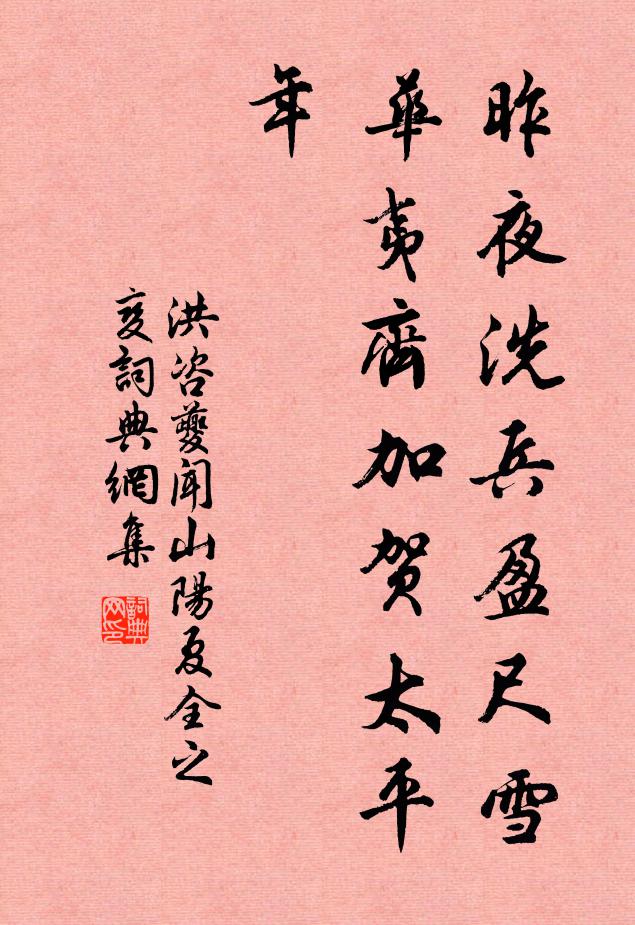 昨夜洗兵盈尺雪
華夷齊加賀太平
年
洪咨夔聞山陽夏全之
変詞典網集
詞典网印